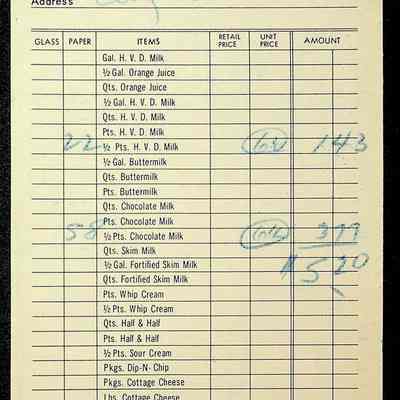 Address
GLASS PAPER ITEMS RETAIL PRICE UNIT PRICE AMOUNT
Gal. H. V. D. Milk
½ Gal. Orange Juice
Qts. Orange Juice
½ Gal. H. V. D. Milk
Qts. H. V. D. Milk
Pts. H. V. D. Milk
22 ½ Pts. H. V. D. Milk 143
½ Gal. Buttermilk
Qts. Buttermilk
Pts. Buttermilk
Qts. Chocolate Milk
Pts. Chocolate Milk
58 ½ Pts. Chocolate Milk 377
Qts. Skim Milk
½ Gal. Fortified Skim Milk $5 20
Qts. Fortified Skim Milk
Pts. Whip Cream
½ Pts. Whip Cream
Qts. Half & Half
Pts. Half & Half
½ Pts. Sour Cream
Pkgs. Dip-N- Chip
Pkgs. Cottage Cheese
Lbs. Cottage Cheese